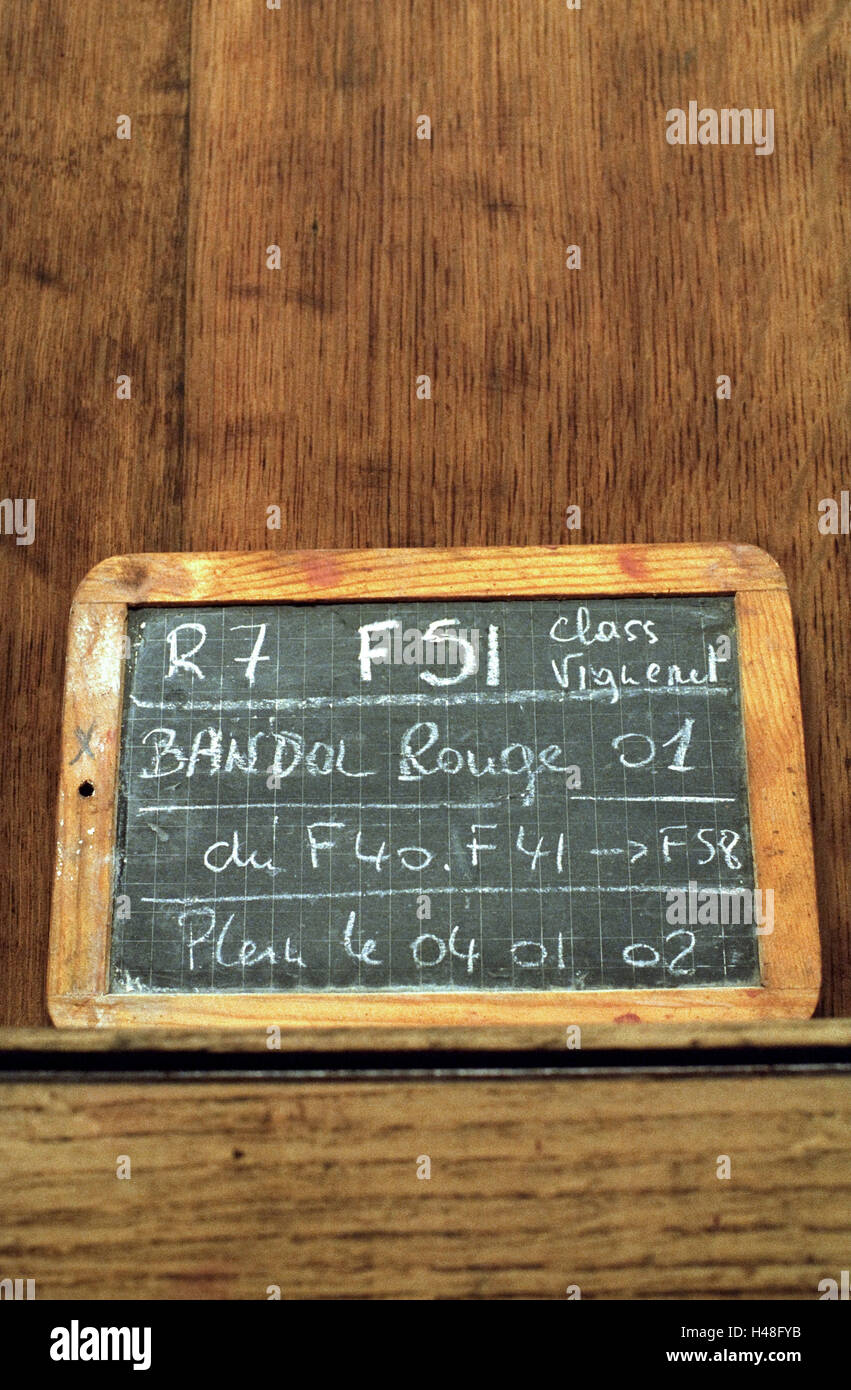 R7 F51 class Viguenet
BANDOL Rouge 01
du F40. F41 → F58
Plein le 04 01 02
alamy
Image ID: H48FYB
www.alamy.com